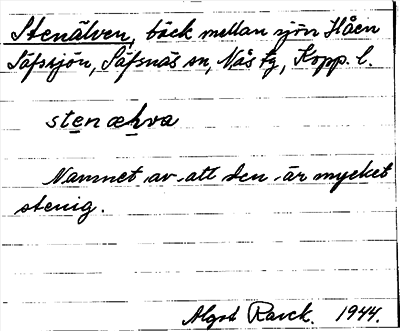 Stenälven, bäck mellan sjön Håen
Säfssjön, Säfsnäs sn, Nås tg, Kopp. l.
stenæhva
Namnet av att den är mycket
stenig.
Algot Ranck. 1944.